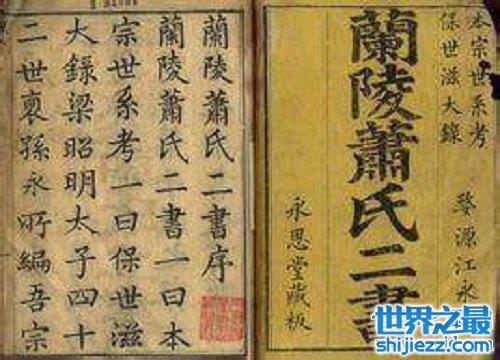 本宗世系考
保世滋大錄
婺源江永
蘭陵蕭氏二書
永恩堂藏板
蘭陵蕭氏二書序
蘭陵蕭氏二書一曰本
宗世系考一曰保世滋
大錄梁昭明太子四十
二世裔孫永所編吾宗
世界之最
shijiezz.com